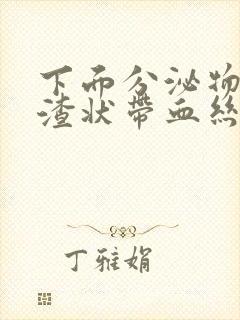 下面分泌物
渣状带血丝
丁雅娟